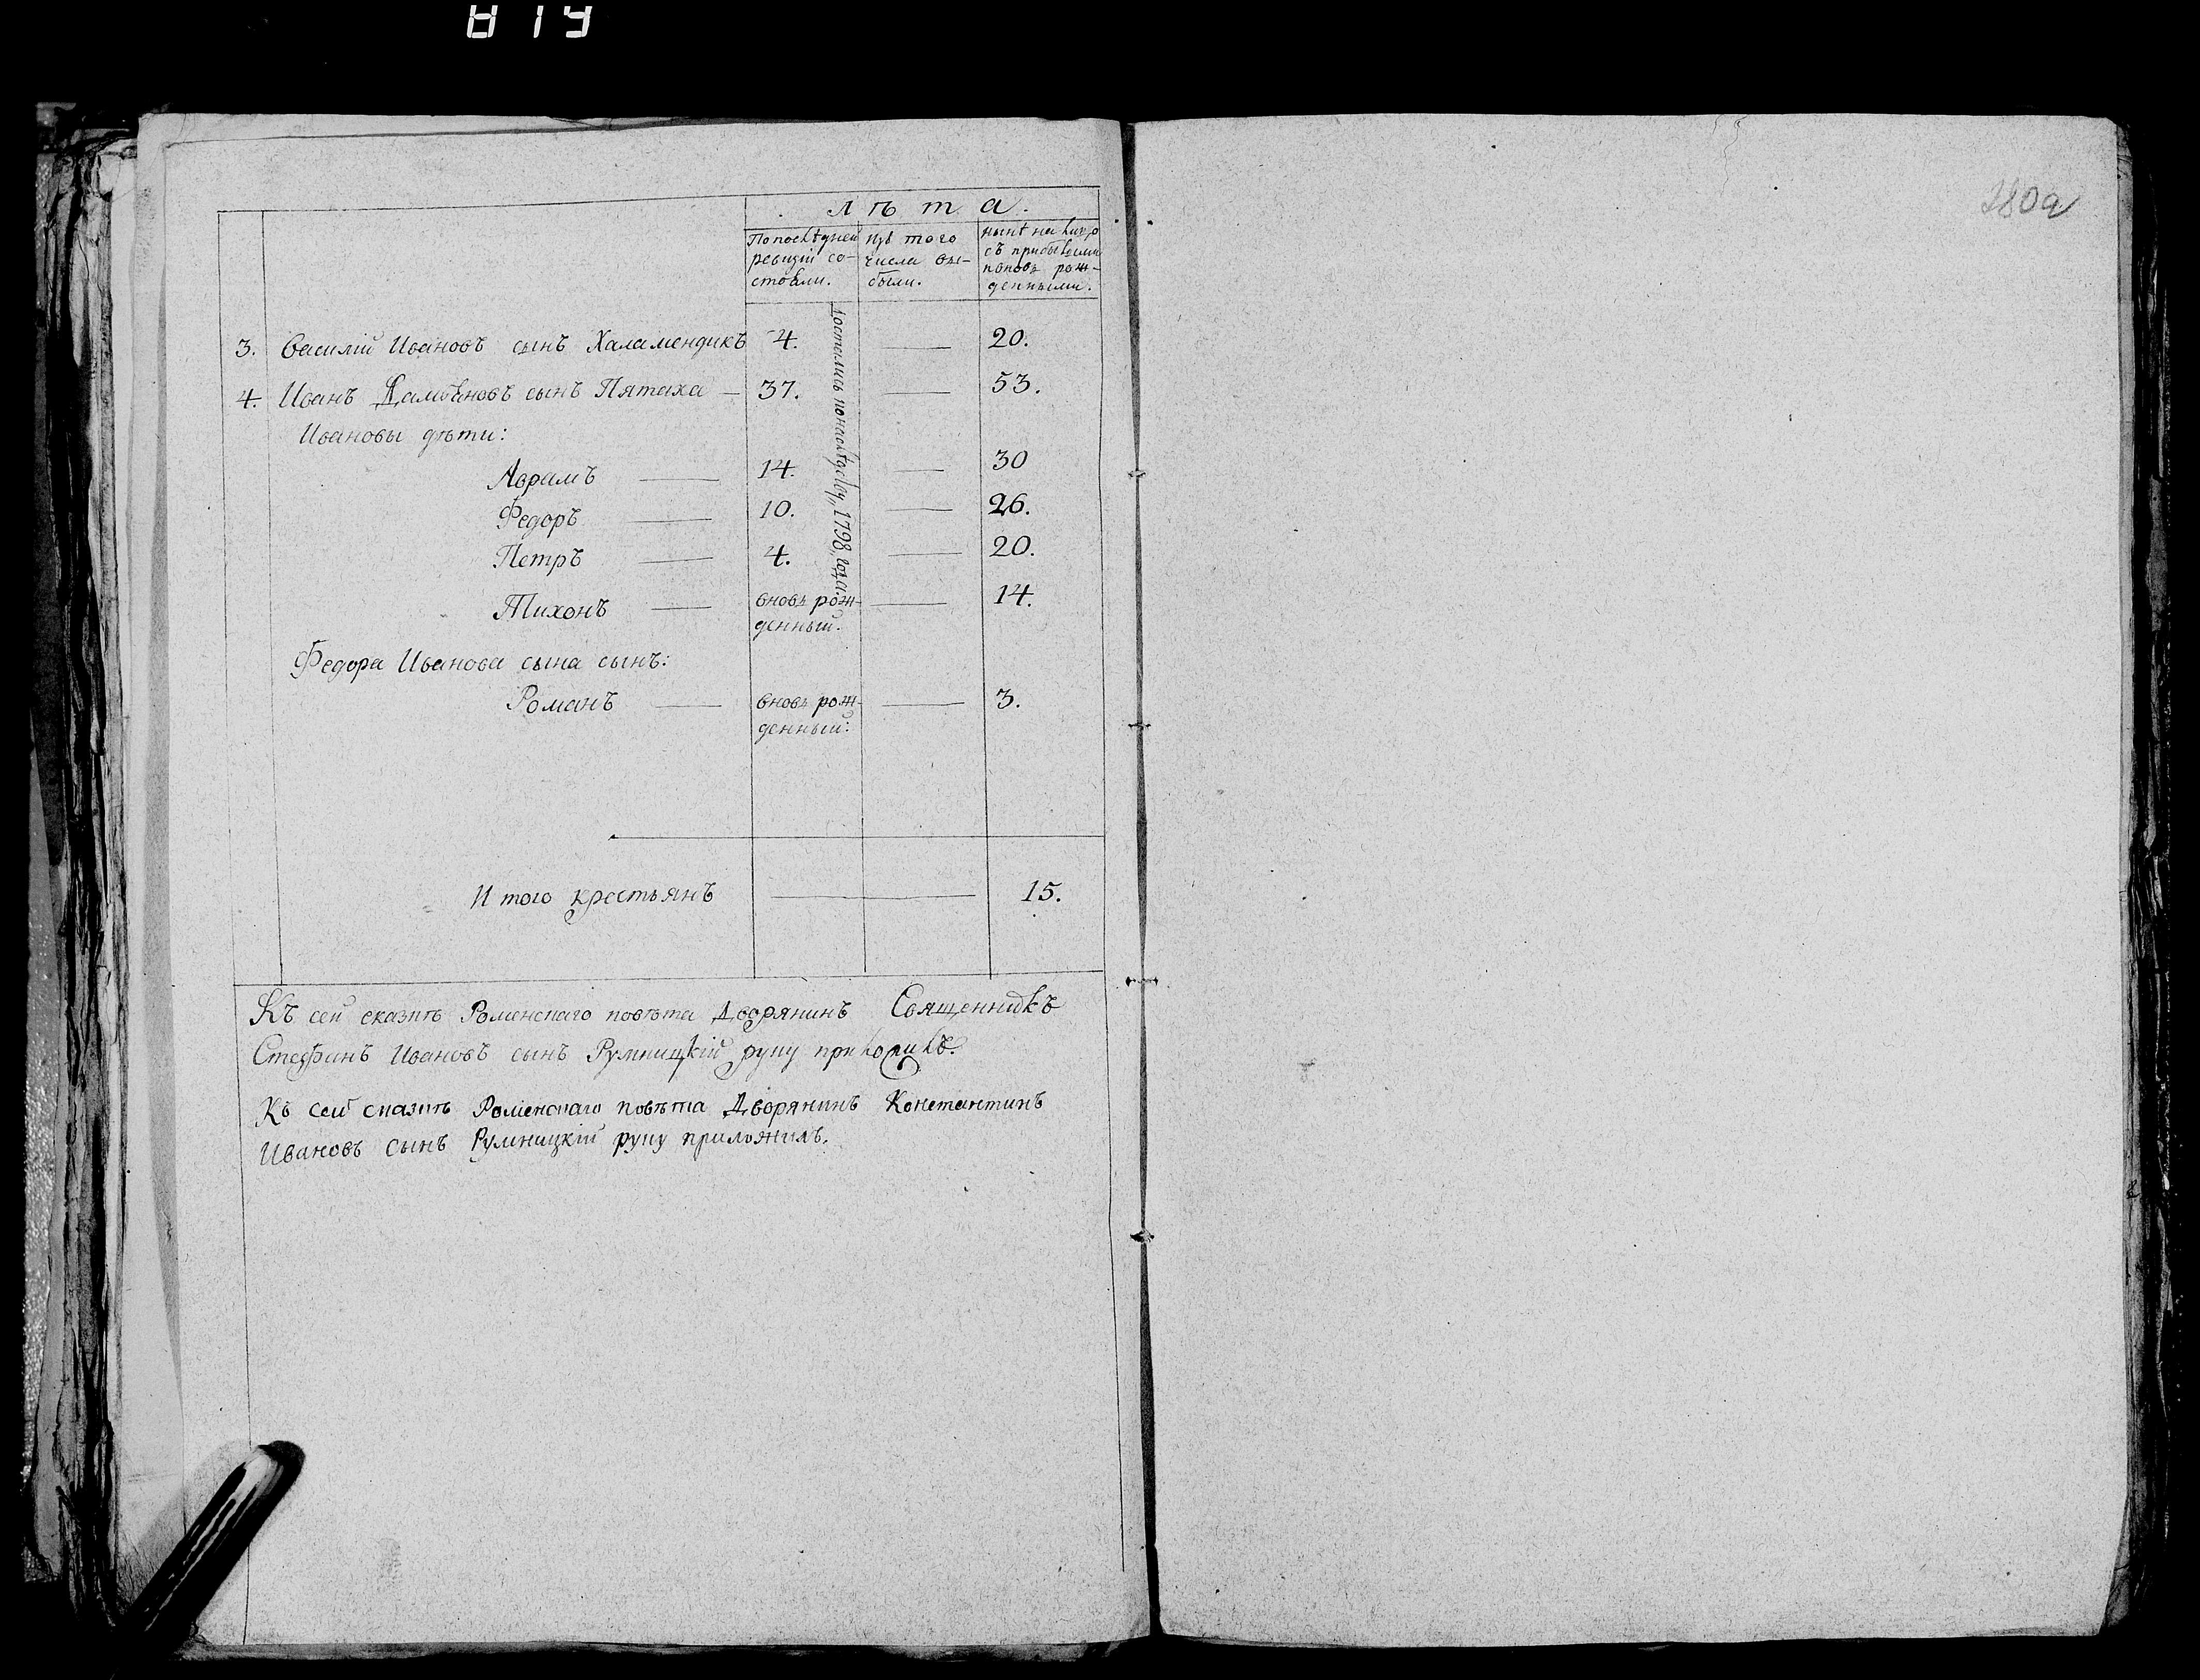 819
280а
лѣта.
По послѣдней ревизіи со-стояли.
Изъ того числа вы-были.
нынѣ на лицо съ прибылыми и вновь рож-денными.
достались по наслѣдству 1798 года.
3. Василій Ивановъ сынъ Халамендикъ 4. — 20.
4. Иванъ Дамьяновъ сынъ Пятаха — 37. — 53.
Ивановы дѣти:
Аврамъ — 14. — 30
Федоръ — 10. — 26.
Петръ — 4. — 20.
Тихонъ — вновь рож- — 14.
денный.
Федора Иванова сына сынъ:
Романъ — вновь рож- — 3.
денный:
И того крестьянъ — 15.
Къ сей сказкѣ Роменскаго повѣта Дворянинъ Священникъ
Стефанъ Ивановъ сынъ Румницкій руку приложилъ.
Къ сей сказкѣ Роменскаго повѣта Дворянинъ Константинъ
Ивановъ сынъ Румницкій руку приложилъ.